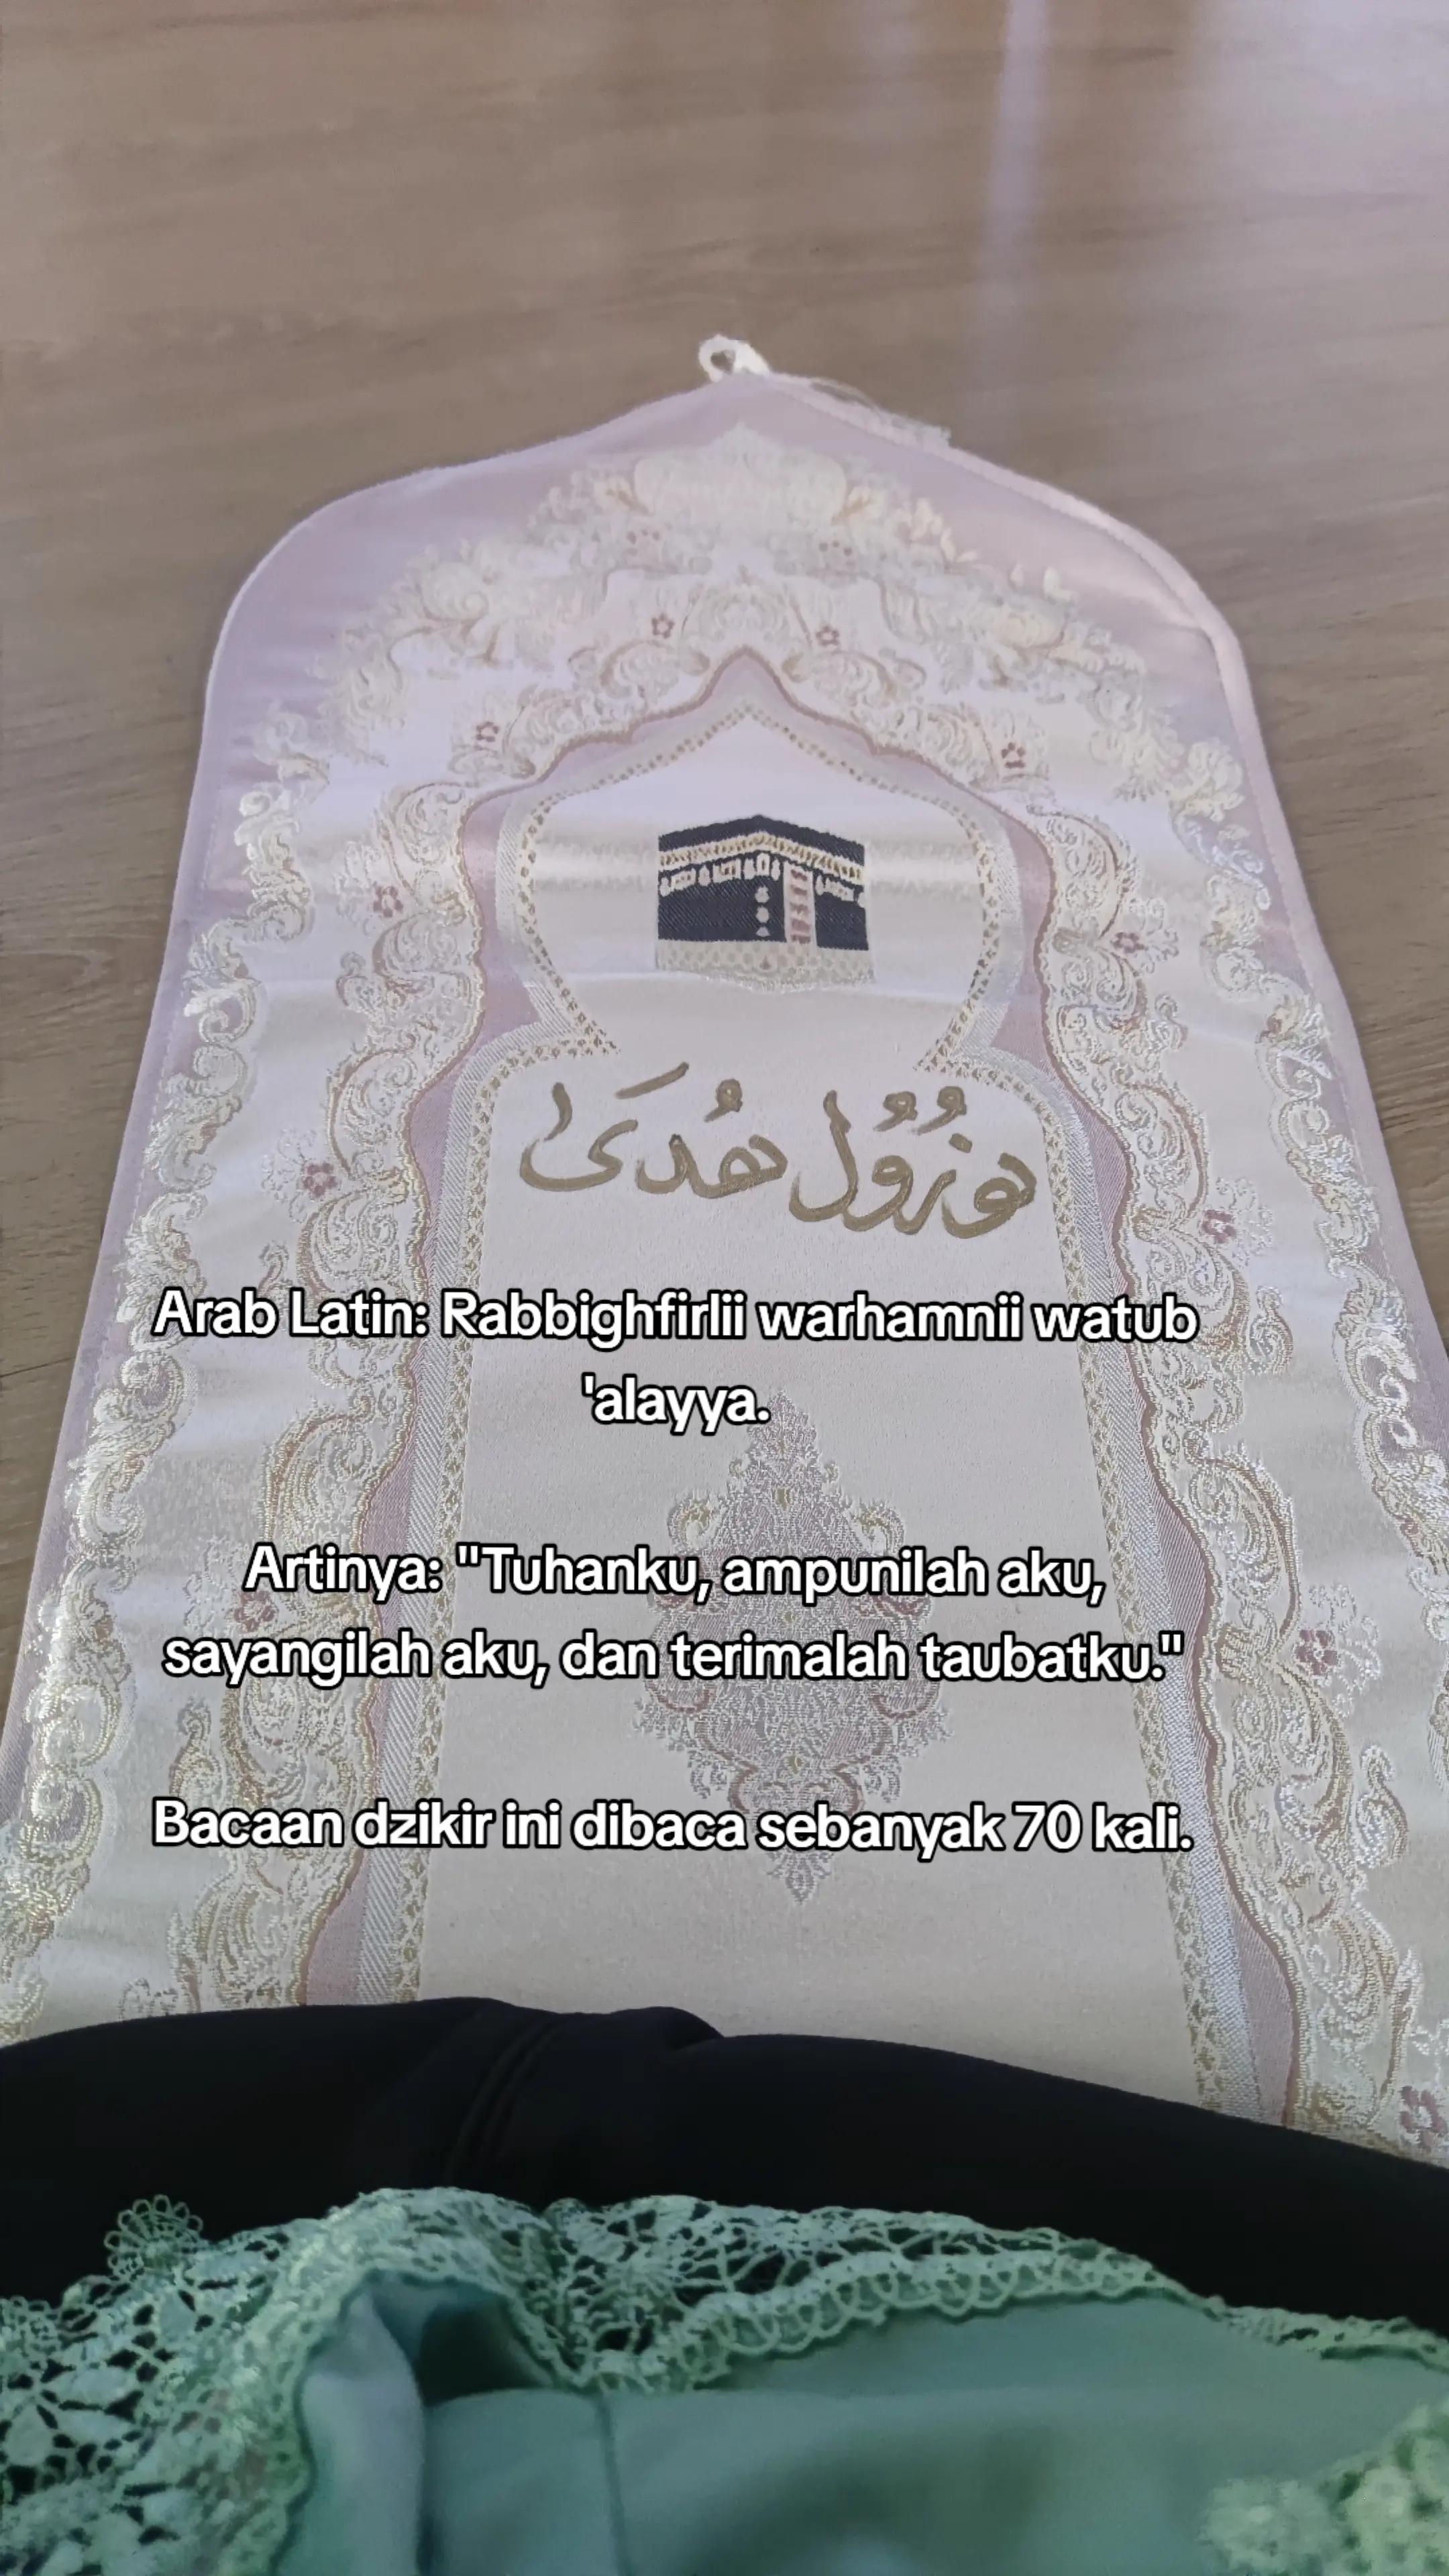 نوزول هدى
Arab Latin: Rabbighfirlii warhamnii watub
'alayya.
Artinya: "Tuhanku, ampunilah aku,
sayangilah aku, dan terimalah taubatku."
Bacaan dzikir ini dibaca sebanyak 70 kali.